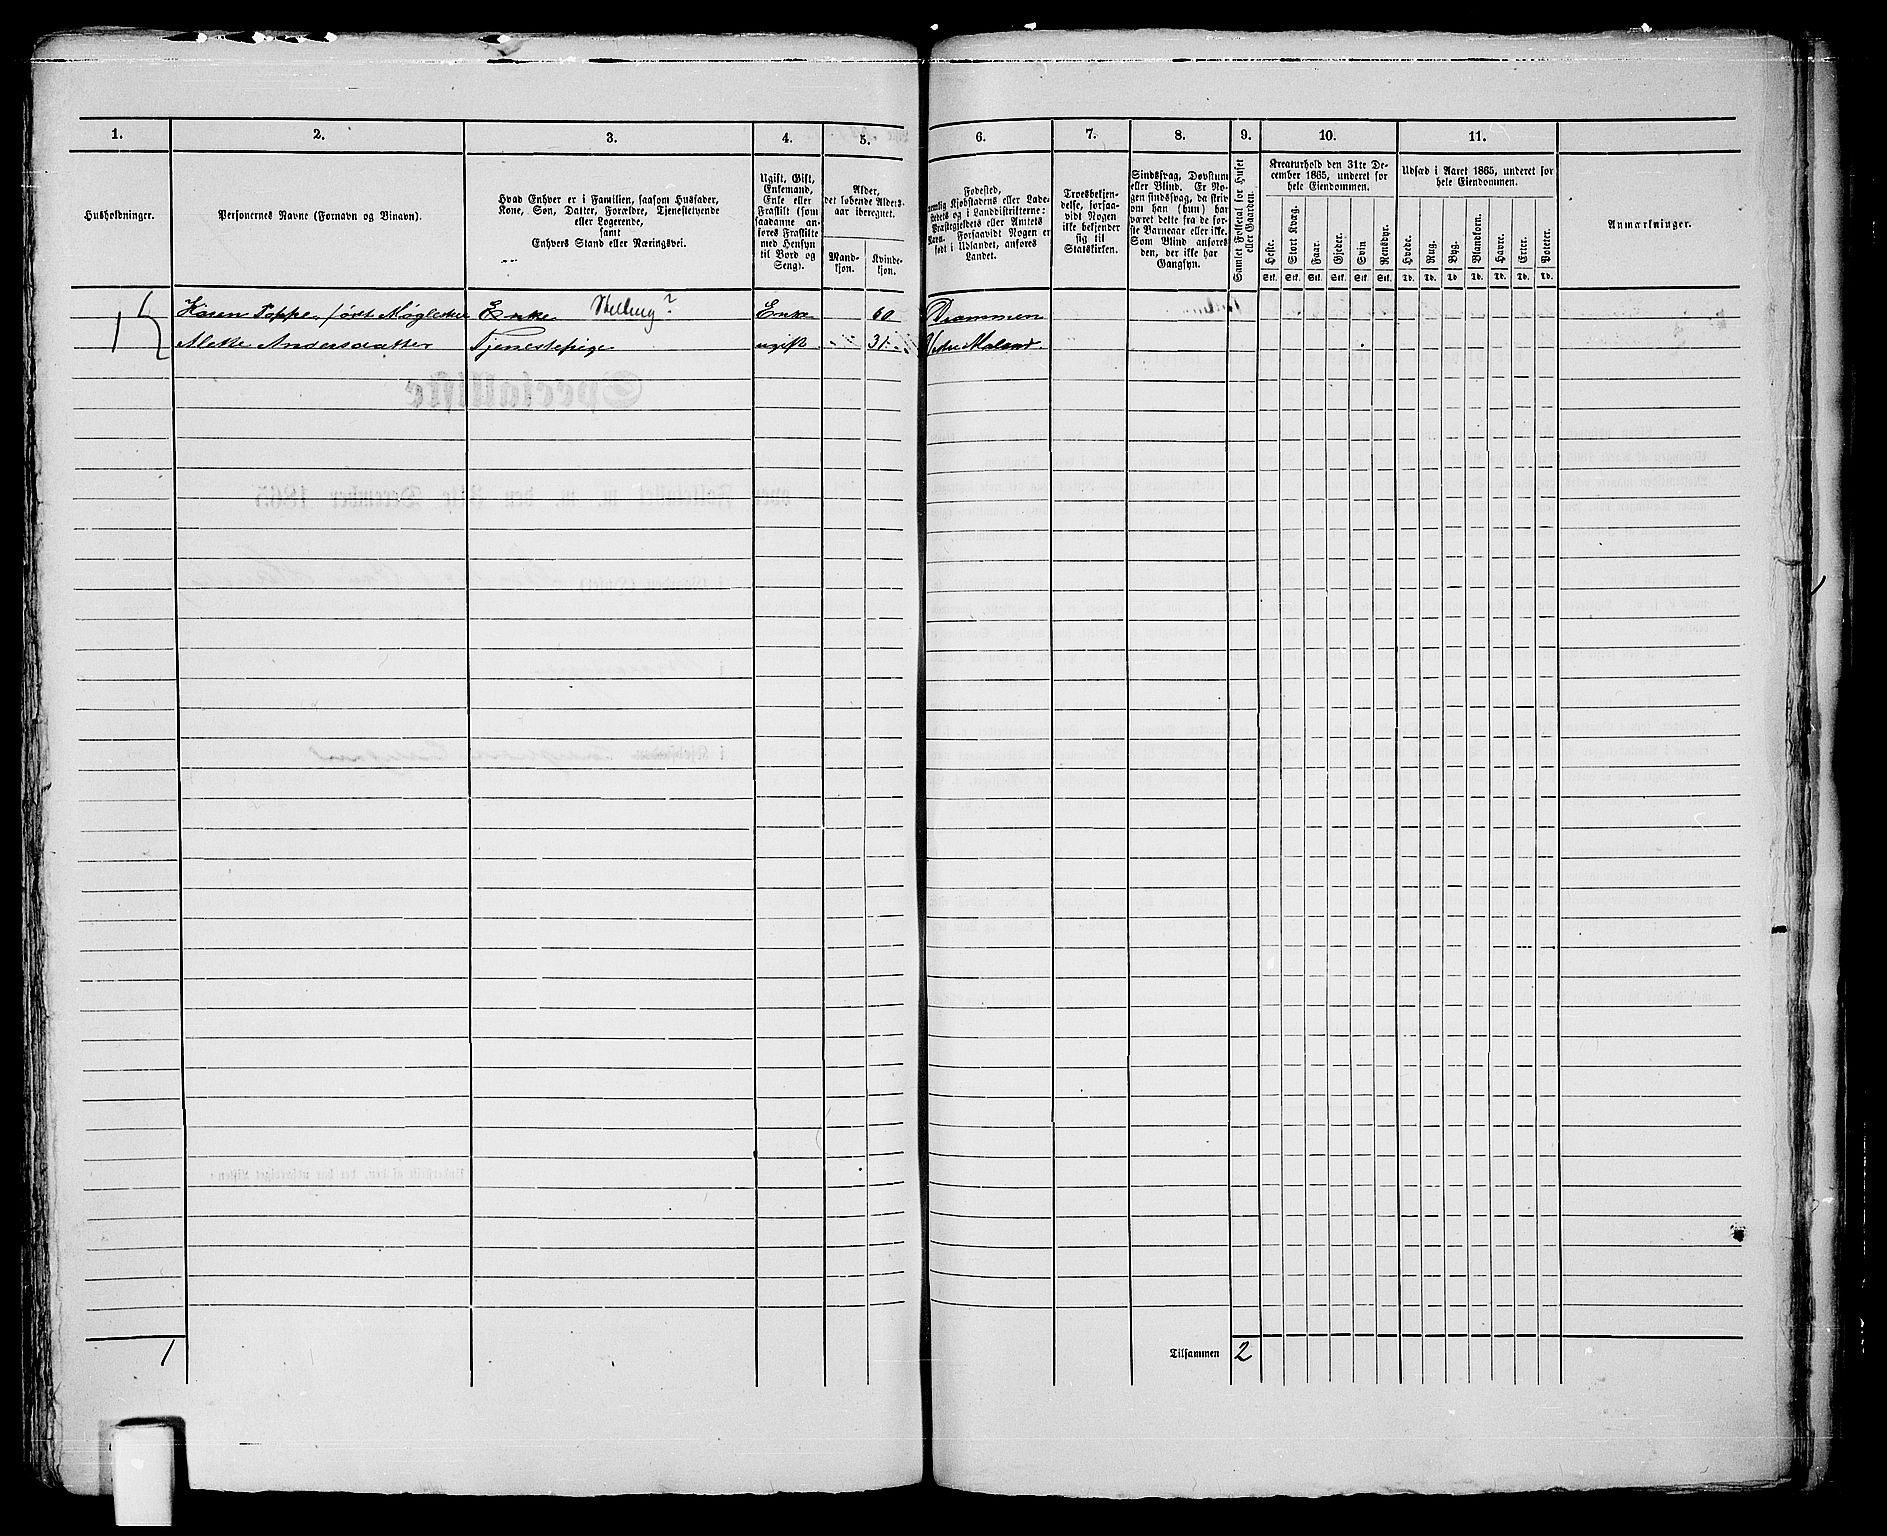 1.
2.
3.
4.
5.
6.
7.
8.
9.
10.
11.
Husholdninger.
Personernes Navne (Fornavn og Binavn).
Hvad Enhver er i Familien, saasom Husfader,
Kone, Søn, Datter, Forældre, Tjenestetyende
eller Logerende,
samt
Enhvers Stand eller Næringsvei.
Ugift, Gift,
Enkemand,
Enke eller
Fraskilt (som
saadanne an-
føres Fraskilte
med Hensyn
til Bord og
Seng).
Alder,
det løbende Alders-
aar iberegnet.
Mand-
kjøn.
Kvinde-
kjøn.
Fødested,
nemlig Kjøbstadens eller Lade-
stedets og i Landdistrikterne:
Præstegjeldets eller Amtets
Navn. Forsaavidt Nogen er
født i Udlandet, anføres
Landet.
Troesbekjen-
delse, forsaa-
vidt Nogen
ikke bekjender
sig til
Statskirken.
Sindssvag, Døvstum
eller Blind. Er No-
gen sindssvag, da skriv
om han (hun) har
været dette fra de før-
ste Barneaar eller ikke.
Som Blind anføres
den, der ikke har
Gangsyn.
Samlet Folketal for Huset
eller Gaarden.
Kreaturhold den 31te De-
cember 1865, underet for
hele Eiendommen.
Heste.
Stort Kvæg.
Faar.
Gjeder.
Svin
Rensdyr.
Stk. Stk. Stk. Stk. Stk. Stk.
Udsæd i Aaret 1865, underet for
hele Eiendommen.
Hvede.
Rug.
Byg.
Blandkorn.
Havre.
Erter.
Poteter.
Td. Td. Td Td. Td. Td. Td.
Anmærkninger.
1 Karen Poppe, født Enke ? Enke 60 Drammen
Alette Andersdatter Tjenestepige ugift 31 Vedre Moland.
1
Tilsammen 2